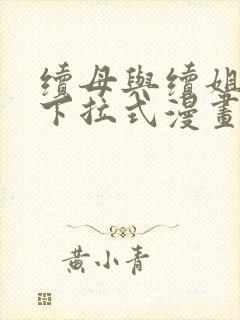 續母與續姐
下拉式漫畫
黃小青